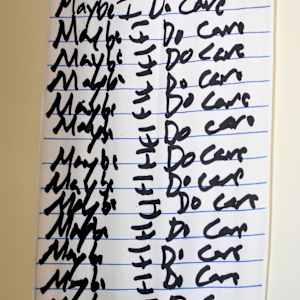 Maybe I Do Care
Maybe I Do Care
Maybe I Do Care
Maybe I Do Care
Maybe I Do Care
Maybe I Do Care
Maybe I Do Care
Maybe I Do Care
Maybe I Do Care
Maybe I Do Care
Maybe I Do Care
Maybe I Do Care